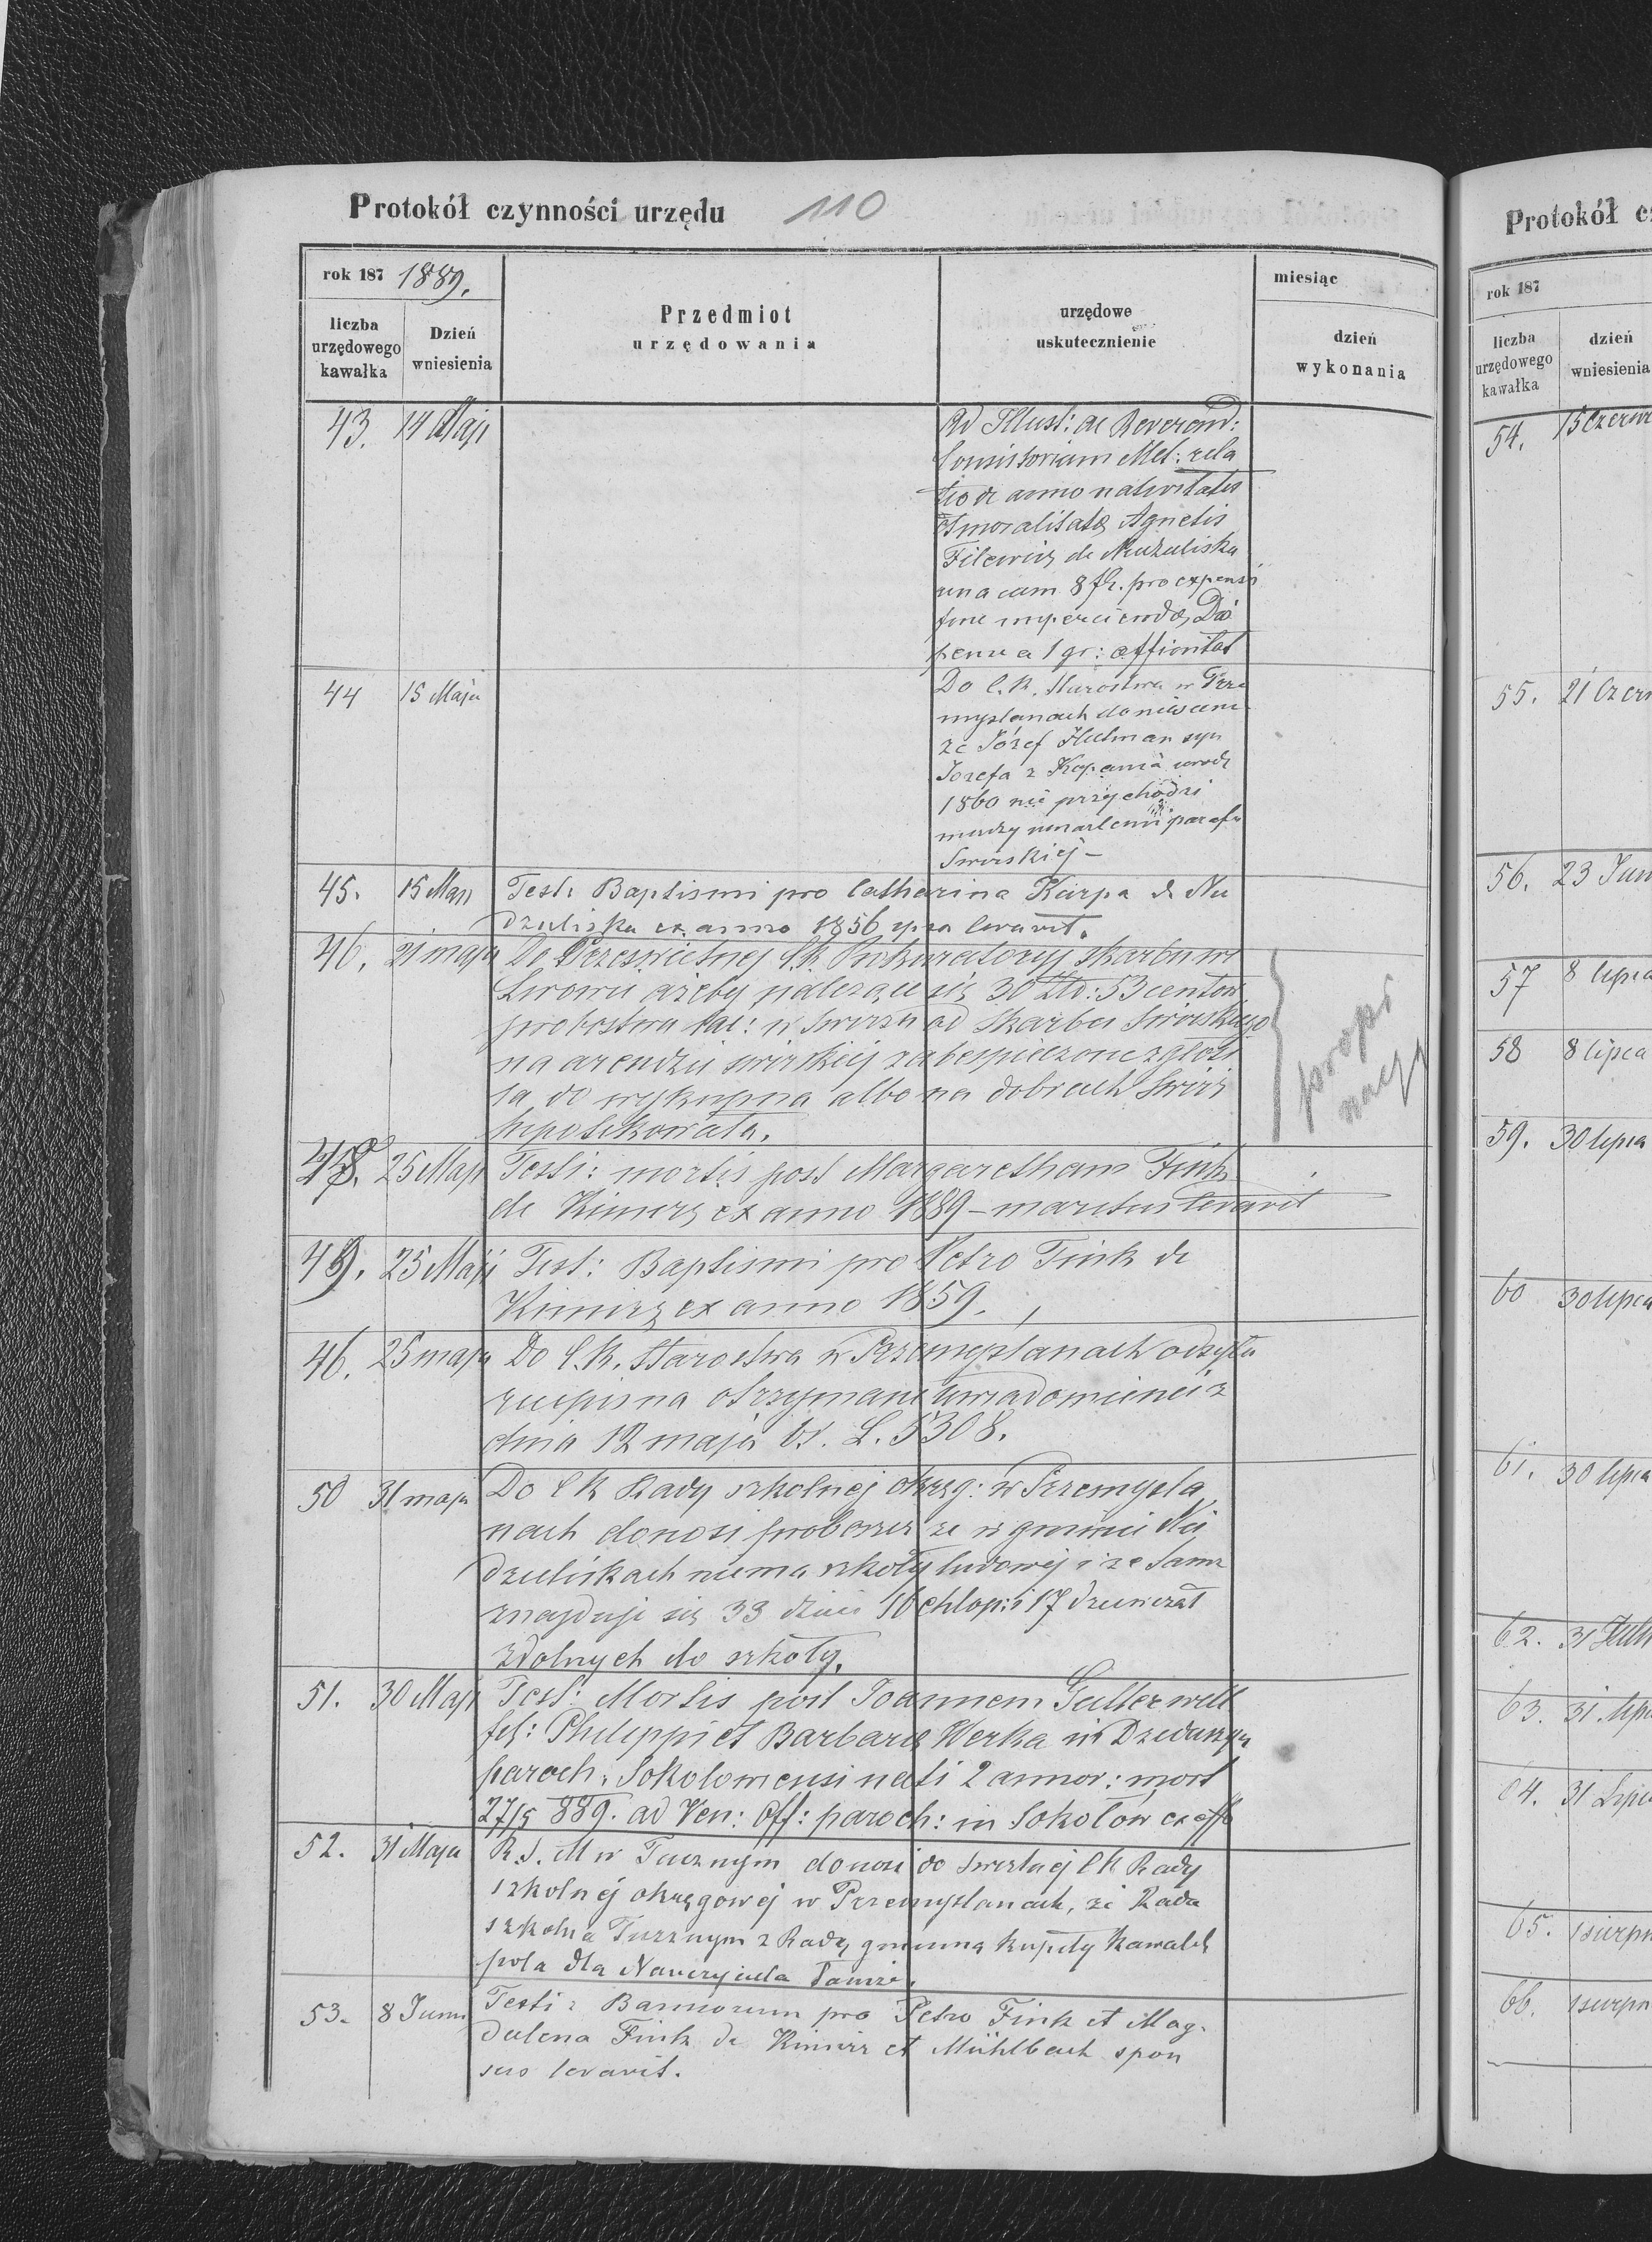 Protokół czynności urzędu 110
rok 187 1889.
liczba urzędowego kawałka
Dzień wniesienia
Przedmiot urzędowania
urzędowe uskutecznienie
miesiąc
dzień wykonania
43. 14 Maji
Ad Illust: ac Reverend:
Consistorium Met: rela
tio de anno nativitatis
et moralitate Agnetis
Filewicz de
una cum 8 fl. pro expensis
44 15 Maja
Do C. K. Starostwa w Prze
myslanach doniesieni
ze Józef Hutman syn
Jozefa z Kopania urodz
1860 nie przychodzi
miedzy umarlemi parafii
Swirskiej –
45. 15 Maji Test: Baptismi pro Catharina Karpa de Nu
dzuliska ex anno 1856 ipsa levavit.
46. 21 maja Do Przeswietnej C.K. Prokuratoryj skarbu we
Lwowie azeby nalezące się 30 Złr: 53 centow
probostwu łac: w Swirzu od Skarbu Swirskiego
na arendzie swirskiej zabespieczone zglosi
la do wykupna albo na dobrach Swirz
hipotekowała.
propi
nacji
48. 25 Maji Testi: mortis post Margaretham Fink
de Kimirz ex anno 1889 – maritus levavit
49. 25 Maji Test: Baptismi pro Petro Fink de
Kimirz ex anno 1859.
46. 25 maja Do C. K. Starostwa w Przemyslanach odsyła
recepis na otrzymane uwiadomienie z
dnia 12 maja br. L. 5308.
50 31 maja Do C K Rady szkolnej okręg: w Przemysla
nach donosi proboszcz ze w gminie Nu
dzuliskach niema szkoły ludowéj i ze tamz
znajduje się 33 dzieci 16 chłop: i 17 dziewcząt
zdolnych do szkoły.
51. 30 Maji Test: Mortis post Joannem Gutterwill
fil: Philippi et Barbara Werka in
paroch: Sokolowiensi nati 2 annor: mort
27/5 889. ad Ven: Off: paroch: in Sokołow ex offo
52. 31 Maja R. S. M w Tucznym donosi do Swietnej C K Rady
szkolnéj okręgowéj w Przemyslanach, ze Rada
szkolna Tucznym z Radą gminną kupiły Kawalek
pola dla Nauczyciela Tamze.
53. 8 Junii Testi: Bannorum pro Petro Fink et Mag-
dalena Fink de Kimirz et Mühlbach spon
sus levavit.
Protokół c
rok 187
liczba urzędowego kawałka
dzień wniesienia
54. 15 Czerw
55. 21 Czer
56. 23 Jun
57 8 lipca
58 8 lipca
59. 30 lipca
60 30 lipca
61. 30 lipca
62. 31
63. 31 lip
64. 31 Lip
65. 1 sierpn
66. 1 sierpn